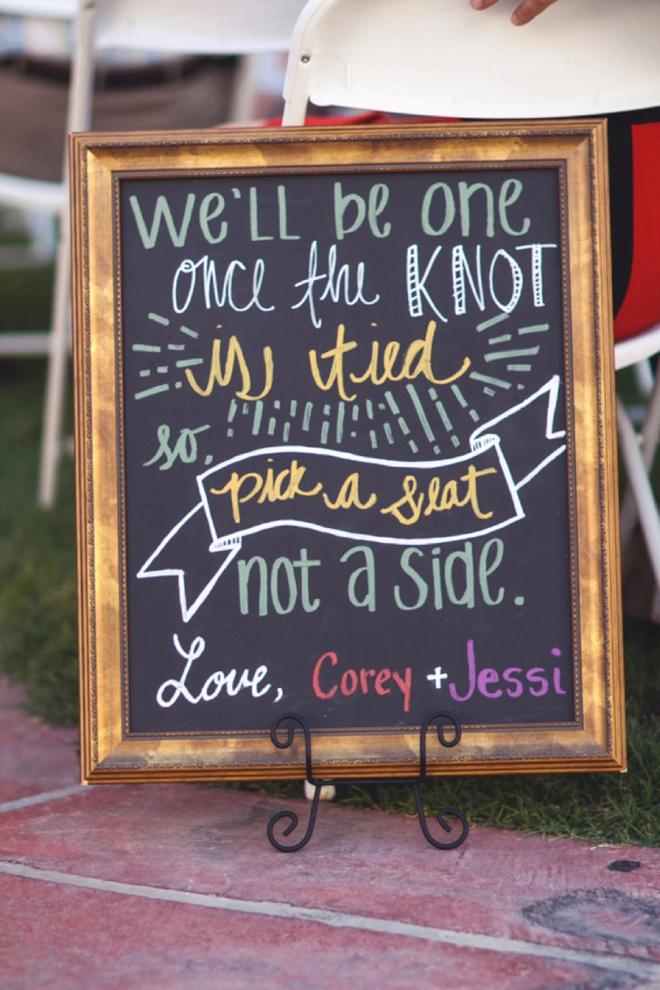 we'll be one
once the KNOT
is tied
so,
pick a seat
not a side.
Love, Corey + Jessi